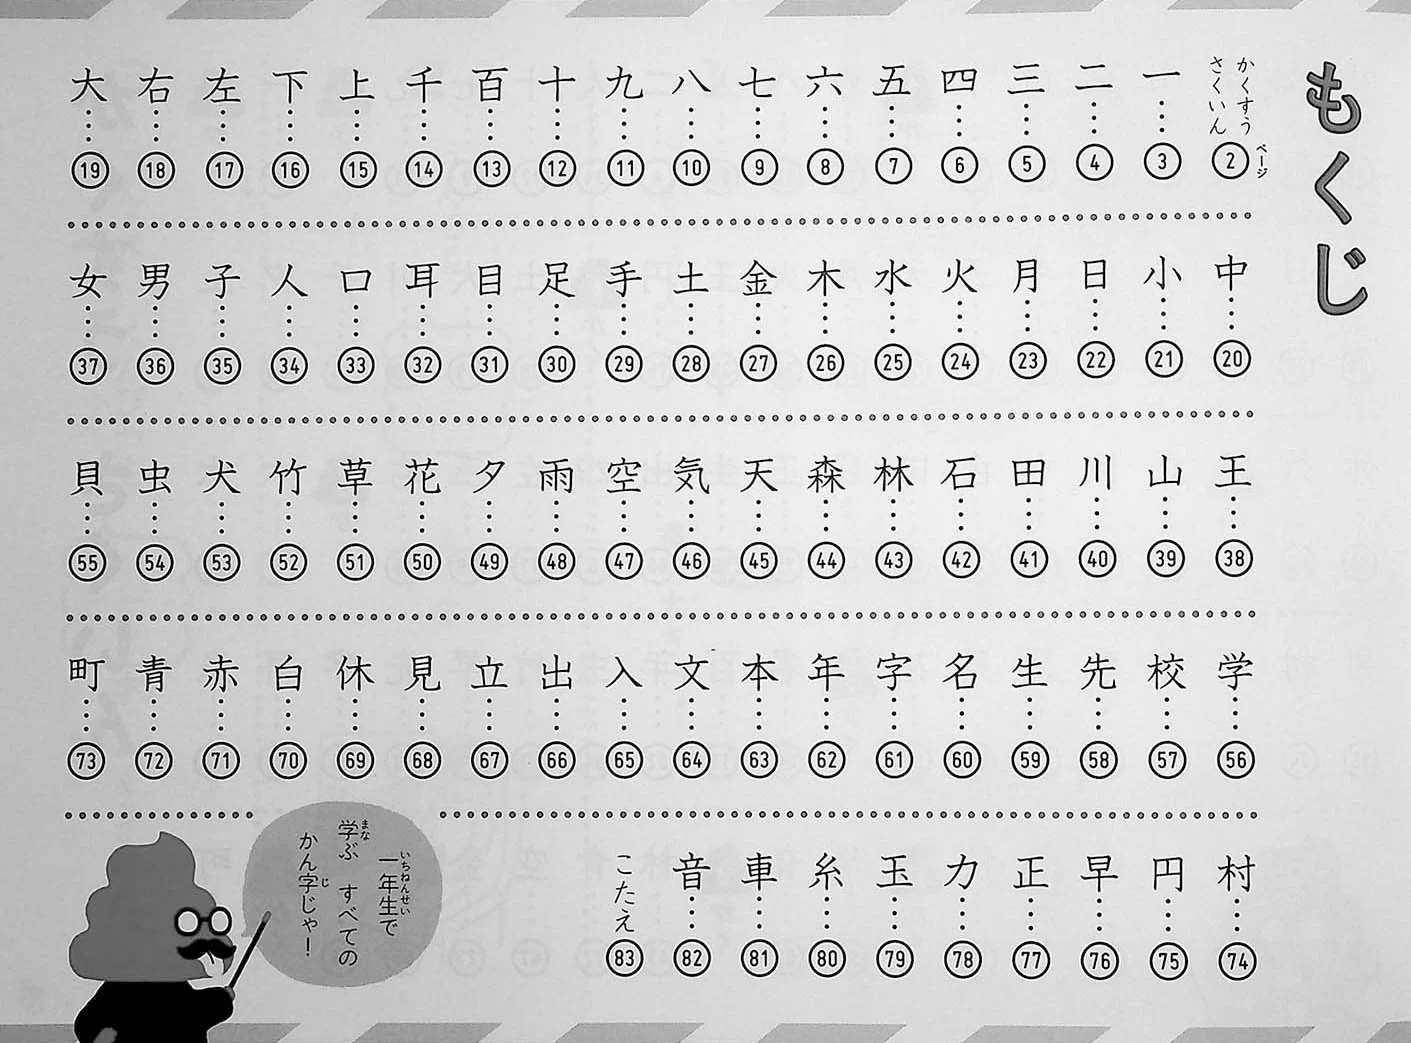 もくじ
かくすう
さくいん……2ページ
一……3
二……4
三……5
四……6
五……7
六……8
七……9
八……10
九……11
十……12
百……13
千……14
上……15
下……16
左……17
右……18
大……19
中……20
小……21
日……22
月……23
火……24
水……25
木……26
金……27
土……28
手……29
足……30
目……31
耳……32
口……33
人……34
子……35
男……36
女……37
王……38
山……39
川……40
田……41
石……42
林……43
森……44
天……45
気……46
空……47
雨……48
夕……49
花……50
草……51
竹……52
犬……53
虫……54
貝……55
学……56
校……57
先……58
生……59
名……60
字……61
年……62
本……63
文……64
入……65
出……66
立……67
見……68
休……69
白……70
赤……71
青……72
町……73
村……74
円……75
早……76
正……77
力……78
玉……79
糸……80
車……81
音……82
こたえ 83
一年生で
いちねんせい
学ぶ すべての
まな
かん字じゃ!
じ